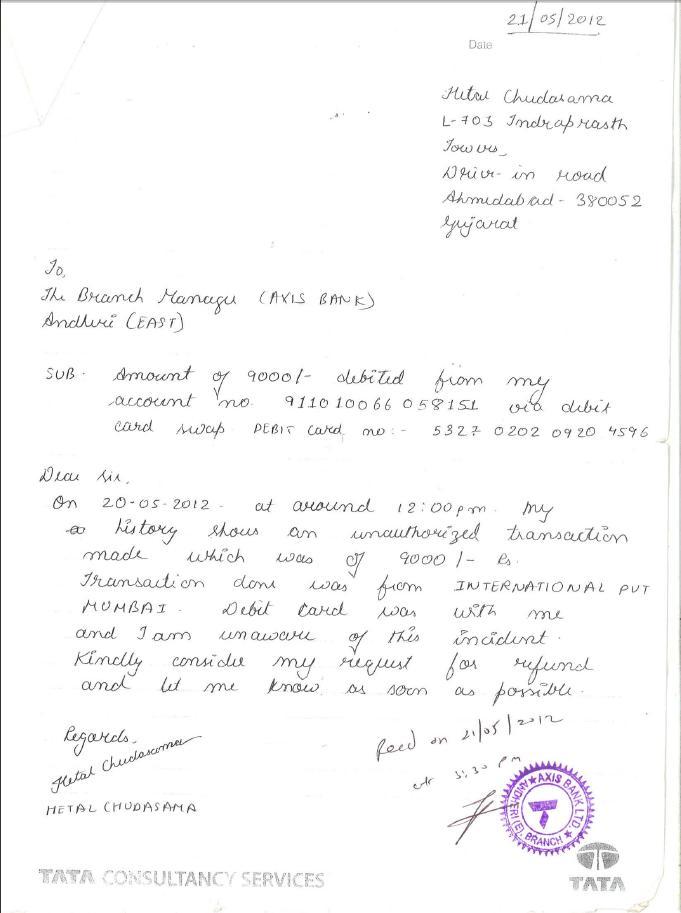 21/05/2012
Date
Hetal Chudasama
L-703 Indraprasth
Towers,
Drive-in road
Ahmedabad - 380052
Gujarat
To,
The Branch Manager (AXIS BANK)
Andheri (EAST)
SUB - Amount of 9000/- debited from my
account no. 911010066058151 via debit
card swap DEBIT card no:- 5327 0202 0920 4596
Dear Sir,
On 20-05-2012 - at around 12:00pm my
history shows an unauthorized transaction
made which was of 9000/- Rs.
Transaction done was from INTERNATIONAL PVT
MUMBAI. Debit Card was with me
and I am unaware of this incident.
Kindly consider my request for refund
and let me know as soon as possible.
Regards,
Hetal Chudasama
HETAL CHUDASAMA
Recd on 21/05/2012
at 3:30 PM
AXIS BANK LTD.
ANDHERI (E), BRANCH
TATA CONSULTANCY SERVICES
TATA